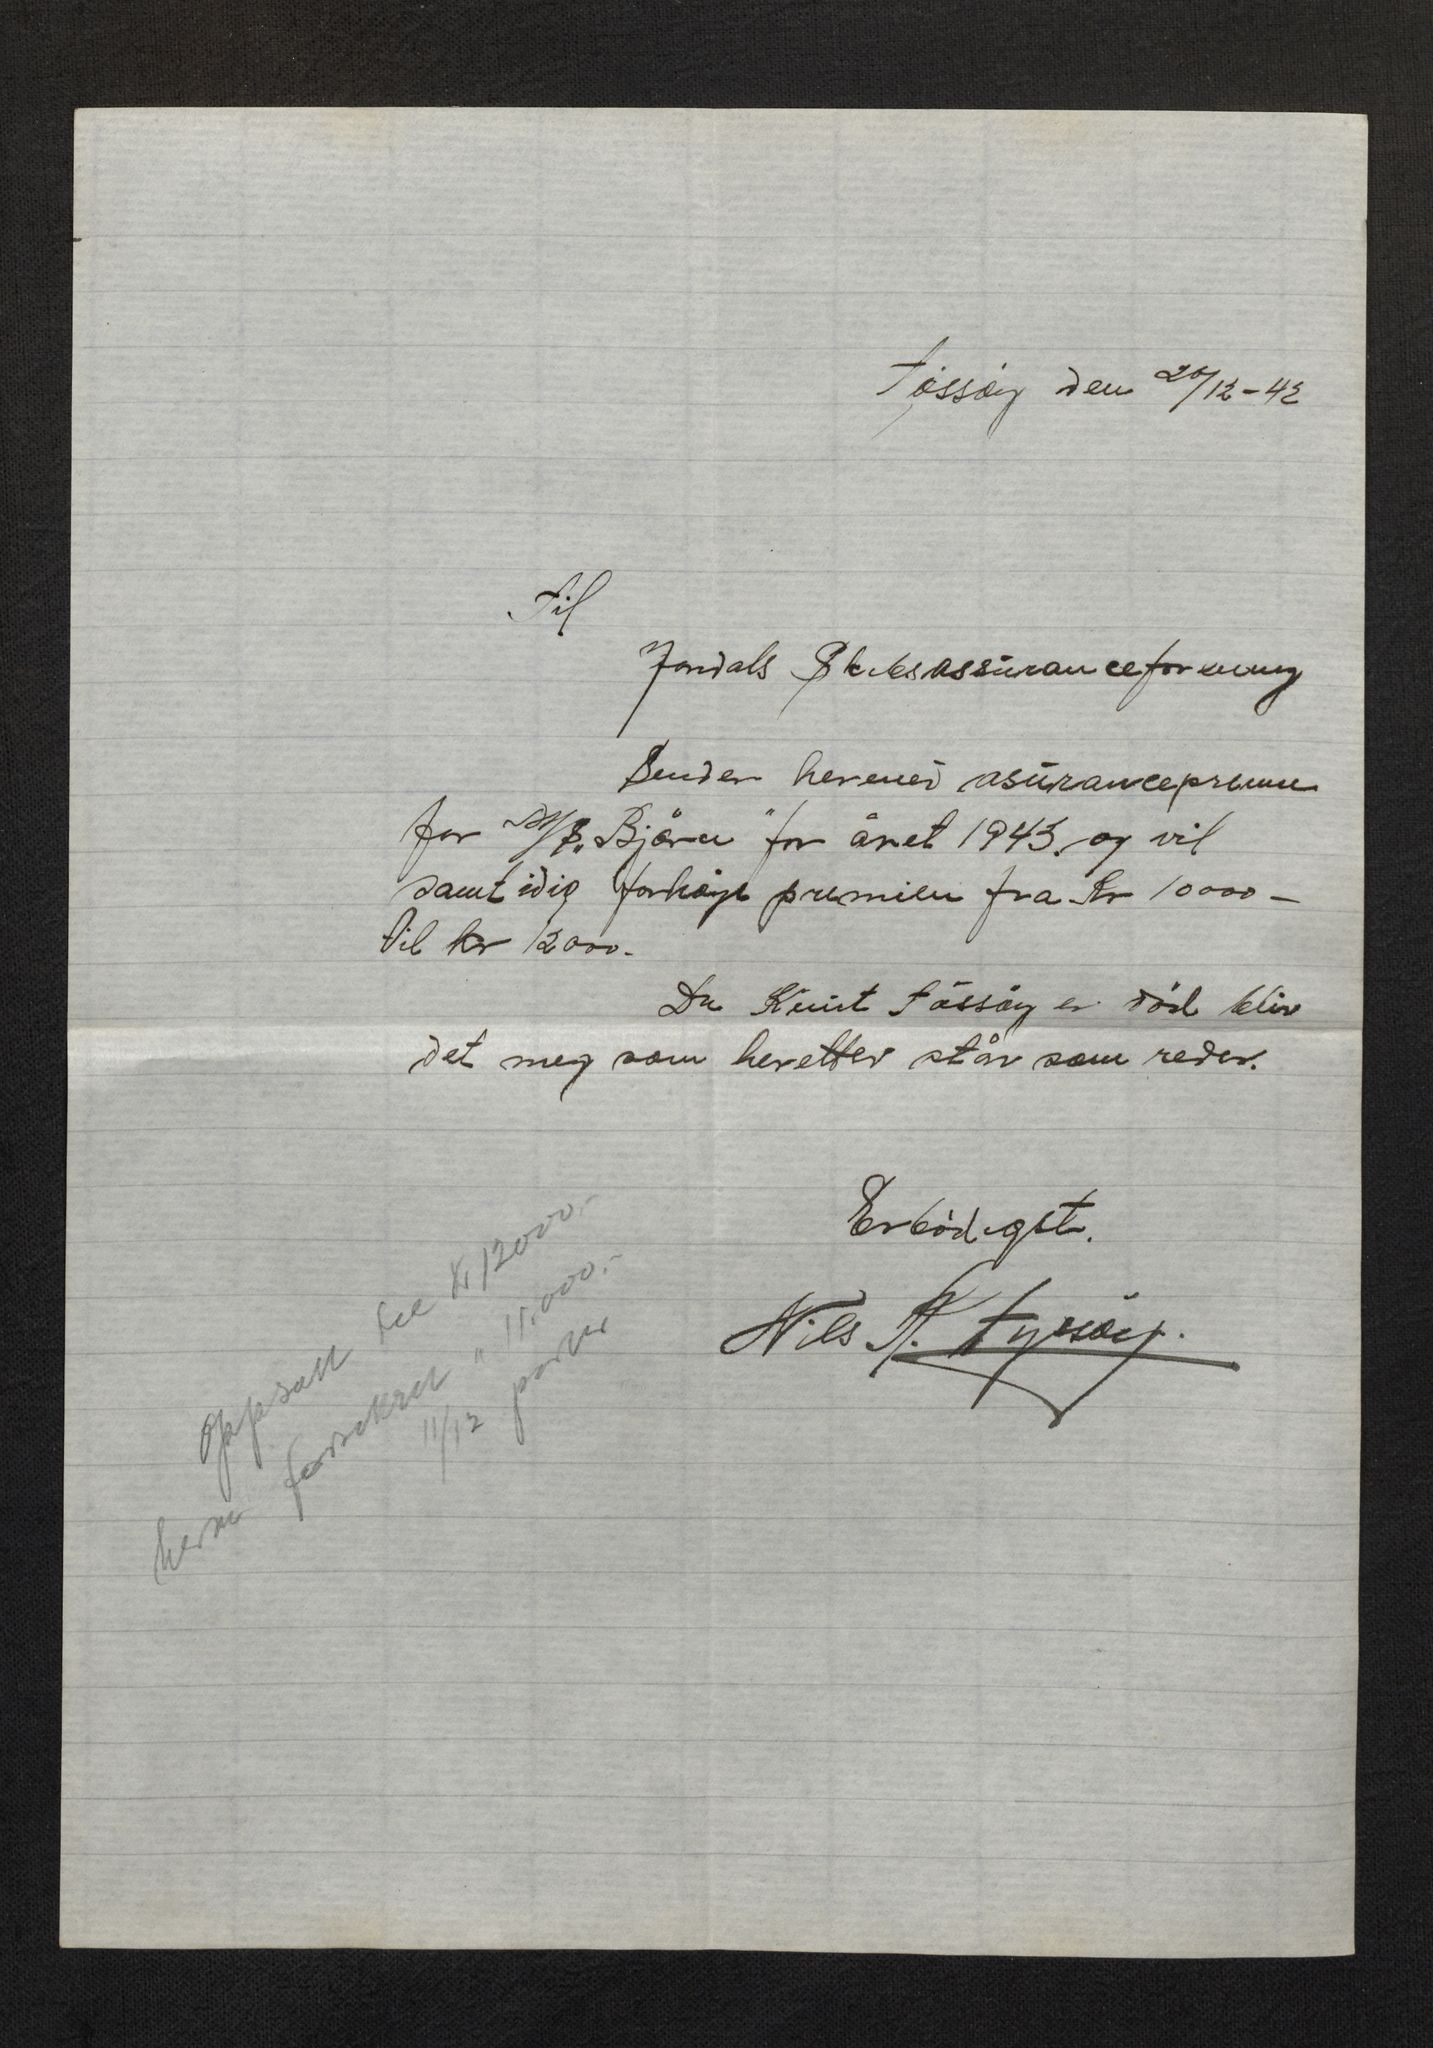 Tøssøy den 20/12-42
Til
Jondals Skibsassuranceforening
Sender hermed asurancepremie
for M/S. "Bjørn" for året 1943. og vil
samtidig forhøye premien fra Kr 10000-
til kr 12000.
Da Knut Tøssøy er død blir
det meg som heretter står som reder.
Erbødigst.
Nils K. Tyssøy.
Oppsatt til Kr 12000.-
herav forsikret " 11.000.-
11/12 parter